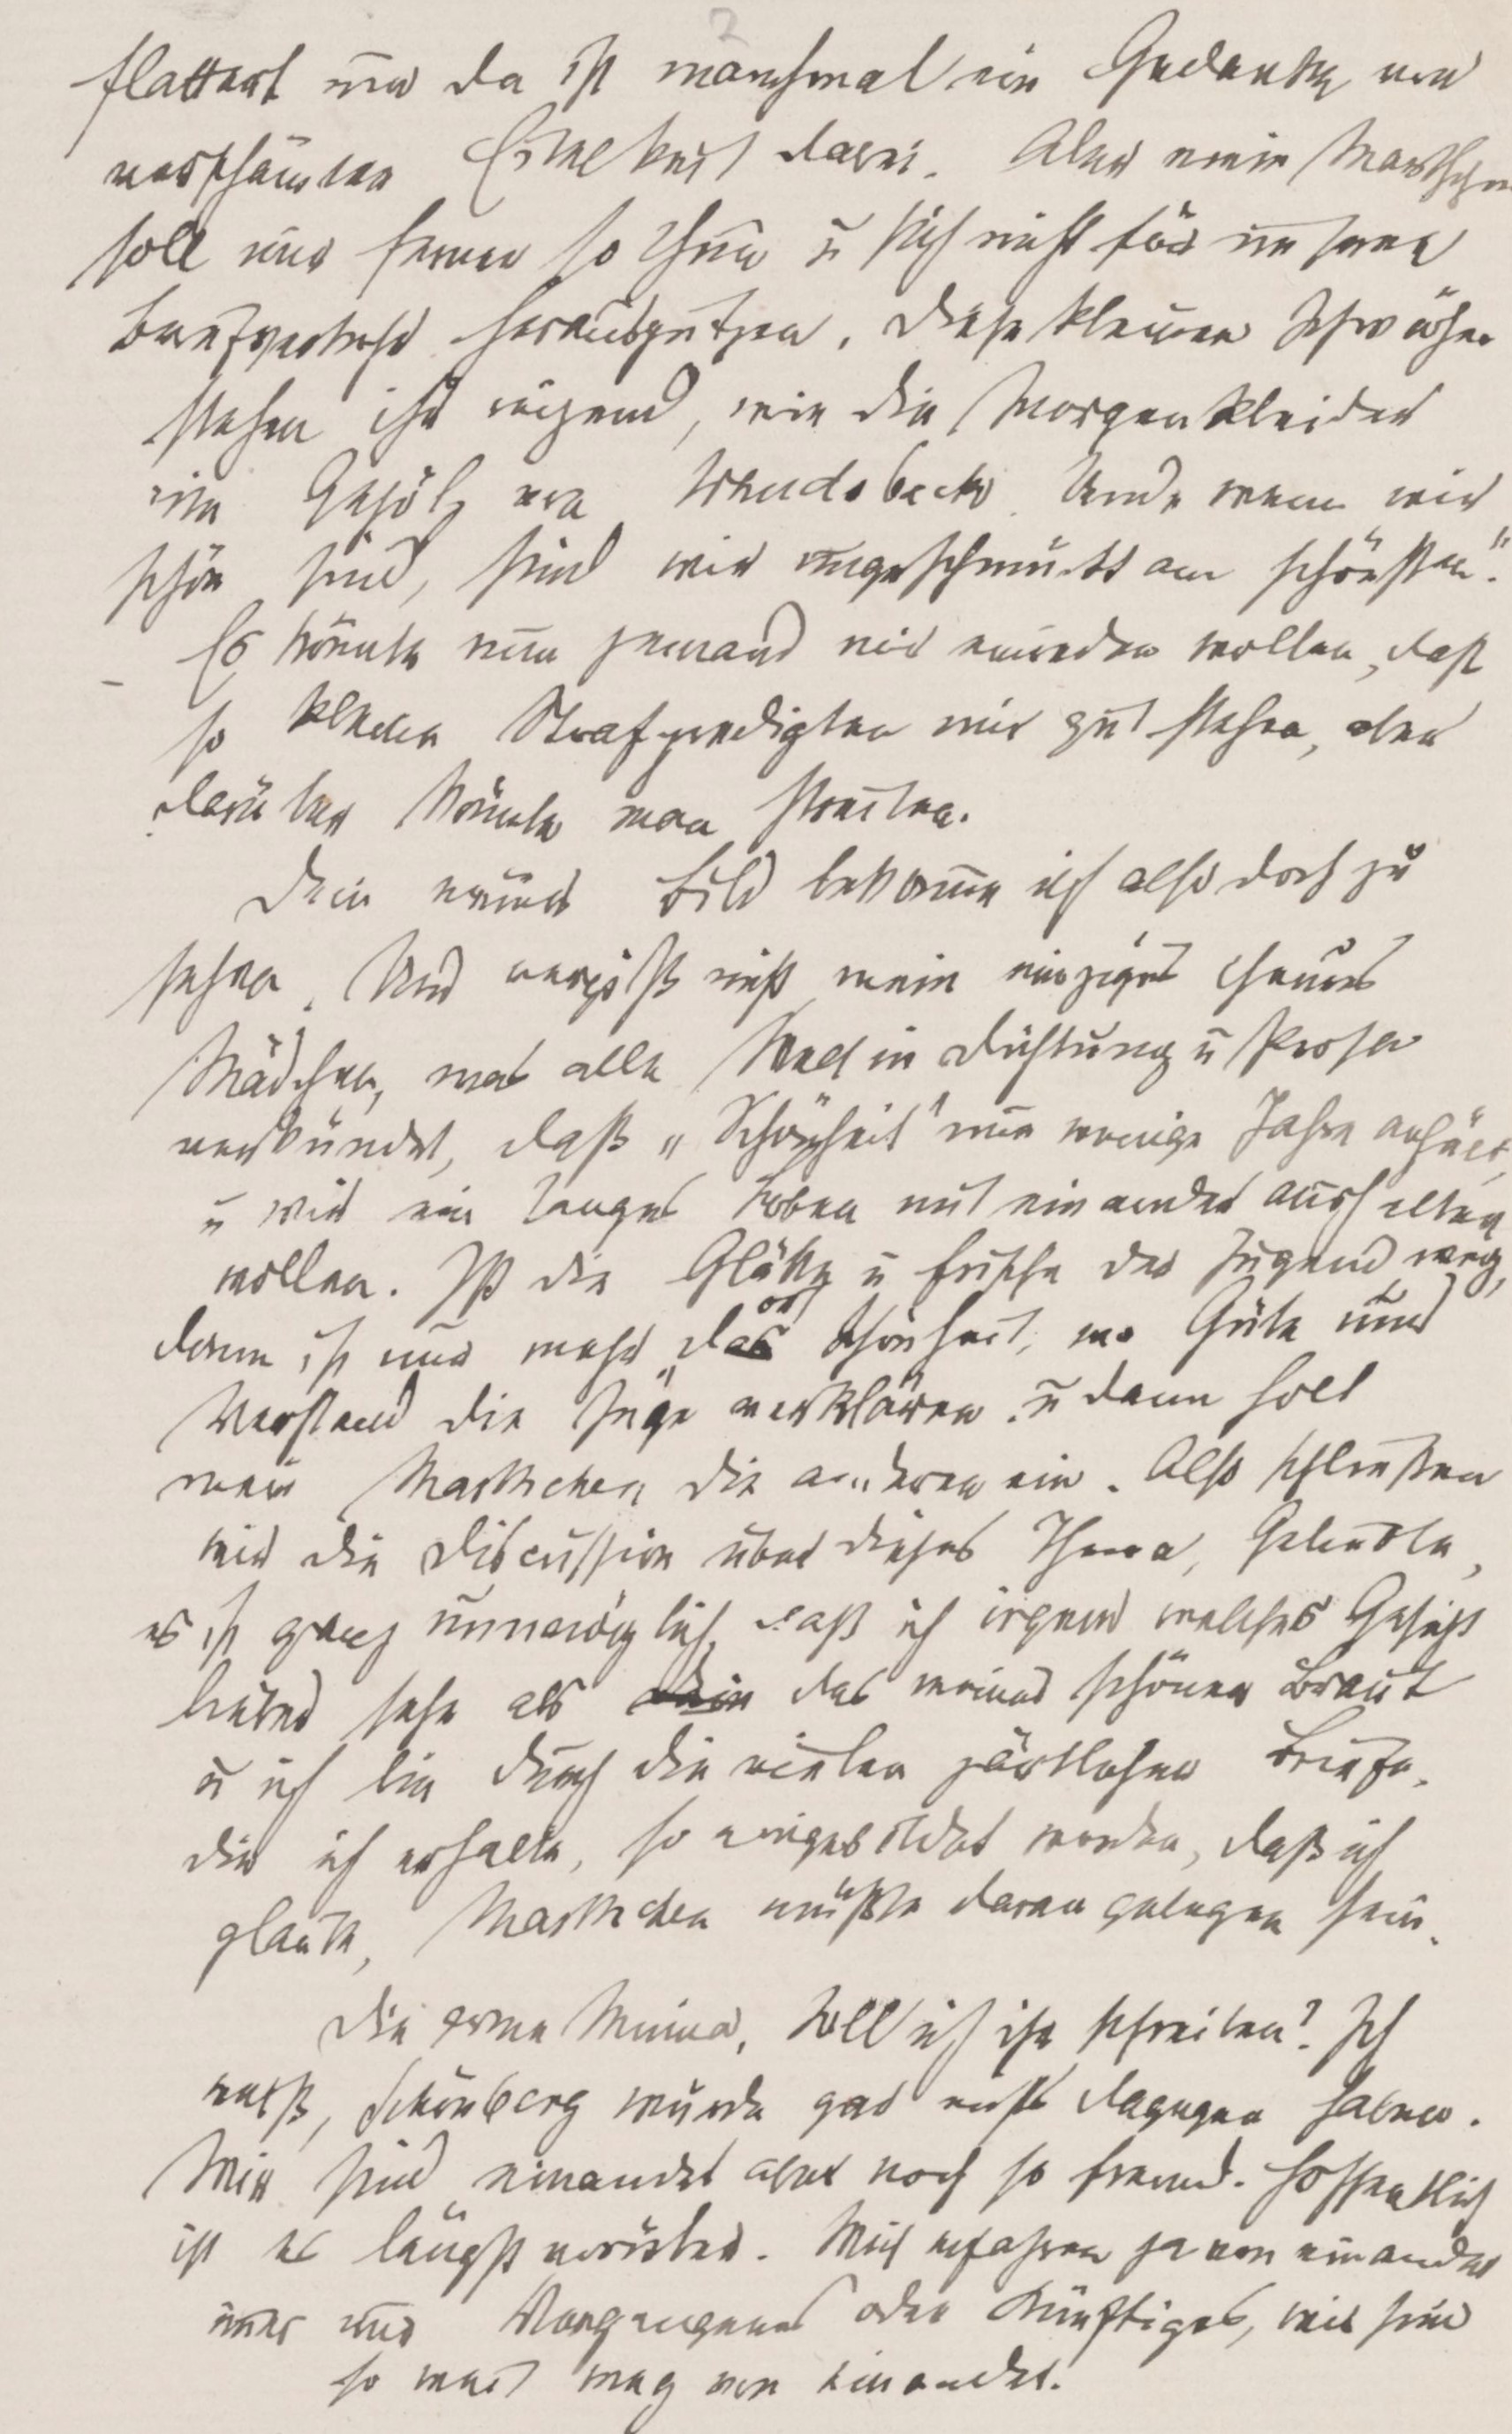 flattert und da ist manchmal ein Gedanke von
verschämter Eitelkeit dabei. Aber mein Marthchen
soll nur ferner so thun u sich nicht für unseren
Briefverkehr herausputzen. Diese kleinen Schwächen
stehen ihr reizend, wie die Morgenkleider
im Gehölz von Wandsbeck. Und „wenn wir
schön sind, sind wir ungeschmückt am schönsten."
Es könnte nun jemand mir einreden wollen, daß
so kleine Strafpredigten mir gut stehen, aber
darüber könnte man streiten.
Dein neues Bild bekomme ich also doch zu
sehen. Und vergiß nicht mein einziges theures
Mädchen, was alle Welt in Dichtung u Prosa
verkündet, daß „Schönheit" nur wenige Jahre anhält,
u wir ein langes Leben mit einander aushalten
wollen. Ist die Glätte u Frische der Jugend weg,
dann ist nur mehr dort Schönheit, wo Güte und
Verstand die Züge verklären. u dann holt
mein Marthchen die anderen ein. Also schließen
wir die Discussion über dieses Thema, Geliebte,
es ist ganz unmöglich, daß ich irgend welches Gesicht
lieber sehe als das meiner schönen Braut
u ich bin durch die vielen zärtlichen Briefe,
die ich erhalte, so eingebildet worden, daß ich
glaube, Marthchen müßte daran gelegen sein.
Die arme Minna, soll ich ihr schreiben? Ich
weiß, Schönberg würde gar nichts dagegen haben.
Wir sind einander aber noch so fremd. Hoffentlich
ist es längst vorüber. Wir erfahren ja von einander
immer nur Vergangenes oder Künftiges, wir sind
so weit weg von einander.